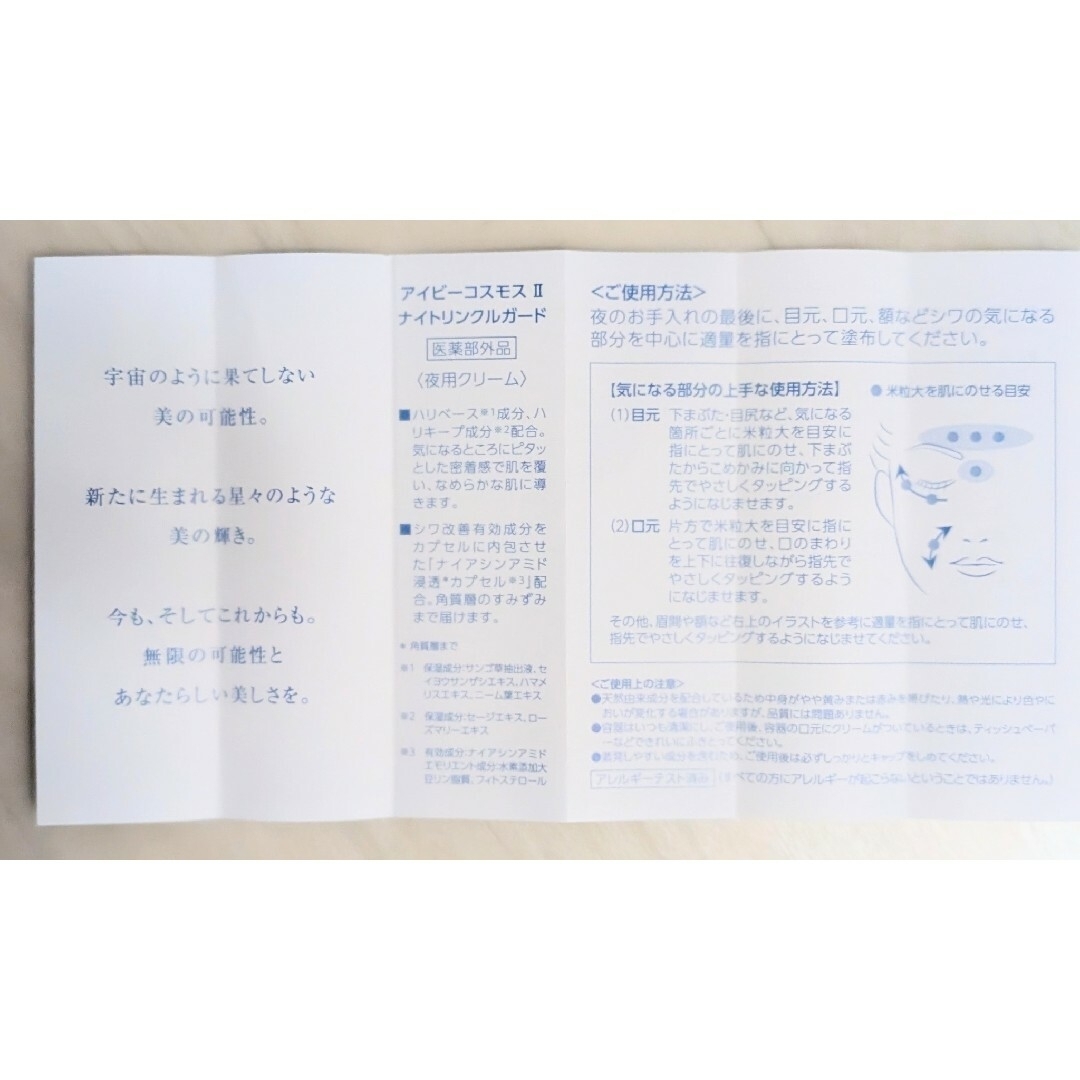 宇宙のように果てしない
美の可能性。
新たに生まれる星々のような
美の輝き。
今も、そしてこれからも。
無限の可能性と
あなたらしい美しさを。
アイビーコスモス II
ナイトリンクルガード
医薬部外品
〈夜用クリーム〉
■ハリベース※1成分、ハ
リキープ成分※2配合。
気になるところにピタッ
とした密着感で肌を覆
い、なめらかな肌に導
きます。
■シワ改善有効成分を
カプセルに内包させ
た「ナイアシンアミド
浸透*カプセル※3」配
合。角質層のすみずみ
まで届けます。
* 角質層まで
※1 保湿成分:サンゴ草抽出液、セ
イヨウサンザシエキス、ハマメ
リスエキス、ニーム葉エキス
※2 保湿成分:セージエキス、ロー
ズマリーエキス
※3 有効成分:ナイアシンアミド
エモリエント成分:水素添加大
豆リン脂質、フィトステロール
<ご使用方法>
夜のお手入れの最後に、目元、口元、額などシワの気になる
部分を中心に適量を指にとって塗布してください。
【気になる部分の上手な使用方法】
(1)目元 下まぶた・目尻など、気になる
箇所ごとに米粒大を目安に
指にとって肌にのせ、下まぶ
たからこめかみに向かって指
先でやさしくタッピングする
ようになじませます。
(2)口元 片方で米粒大を目安に指に
とって肌にのせ、口のまわり
を上下に往復しながら指先で
やさしくタッピングするよう
になじませます。
●米粒大を肌にのせる目安
その他、眉間や額など右上のイラストを参考に適量を指にとって肌にのせ、
指先でやさしくタッピングするようになじませてください。
<ご使用上の注意>
●天然由来成分を配合しているため中身がやや黄みまたは赤みを帯びたり、熱や光により色やに
おいが変化する場合がありますが、品質には問題ありません。
●容器はいつも清潔にし、ご使用後、容器の口元にクリームがついているときは、ティッシュペーパ
ーなどできれいにふきとってください。
●揮発しやすい成分を含むため、ご使用後は必ずしっかりとキャップをしめてください。
アレルギーテスト済み (すべての方にアレルギーが起こらないということではありません。)